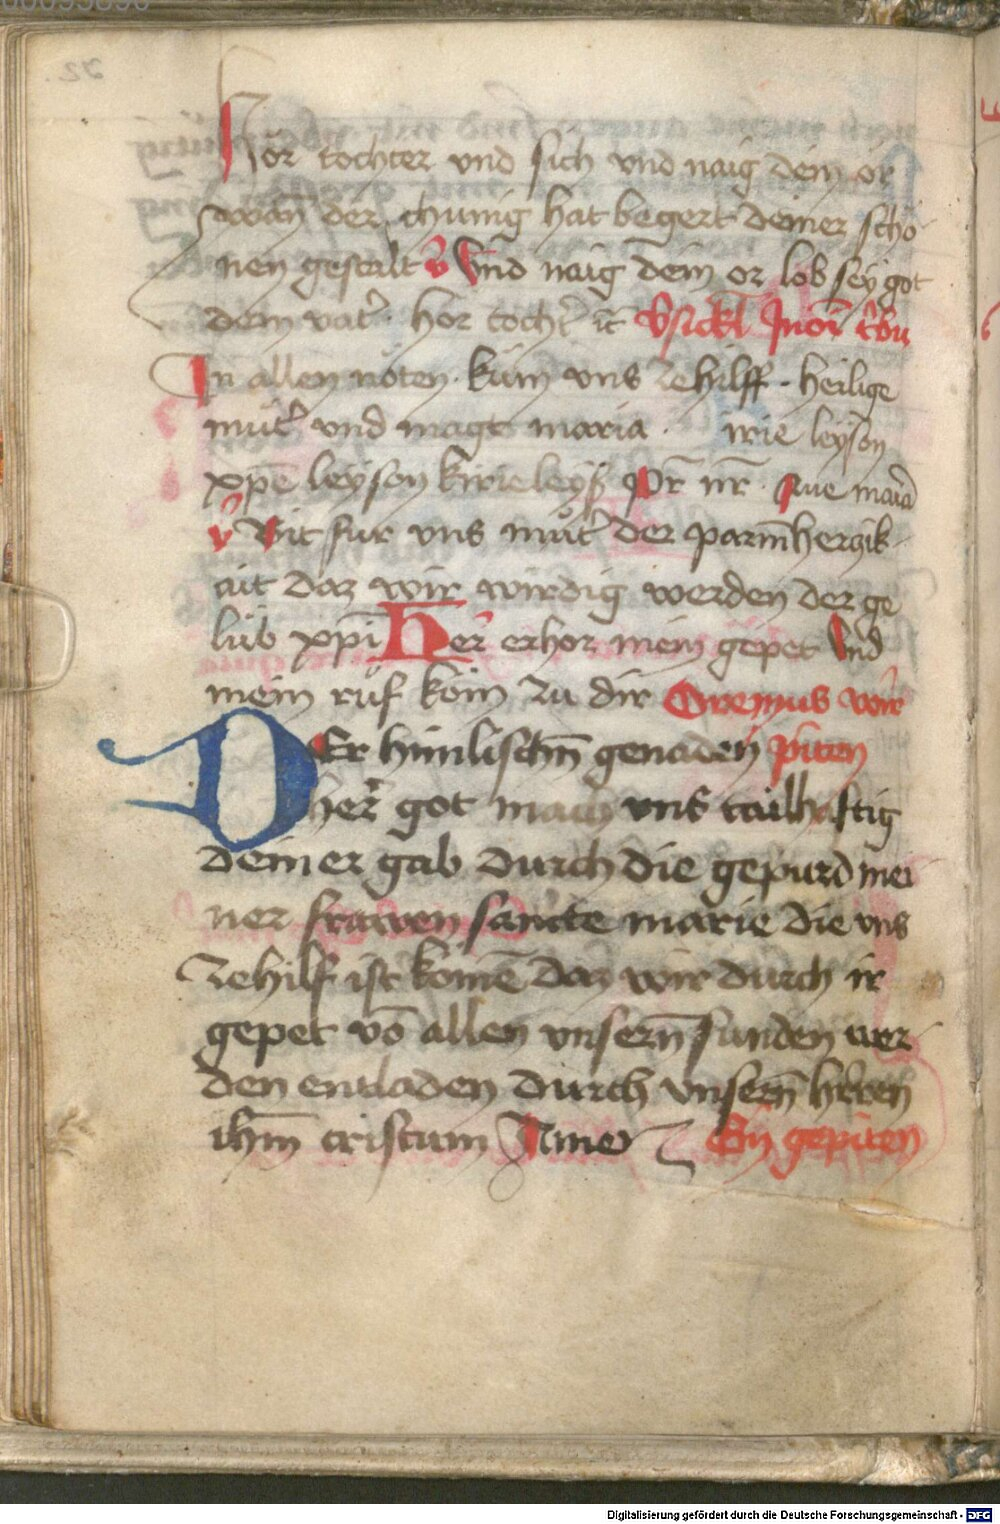 Hör tochter vnd sich vnd naig dein ör
wan der chunig hat begert deiner schö
nen gestalt v̄ Vnd naig dein or lob sey got
dem vat̄ · hör tocht̄ ic̄ Vsickl̄ Jnön̄ t̄bu
In allen nöten · küm vns zehilff · heilige
mut̄ vnd magt maria · irie leyson
xp̄e leyson kirieleyß Pr̄ nr̄ · Aue maria
v̄ Bit fur vns mut̄ der parm̄herczik
ait daz wir wirdig werden der ge
lüb xp̄i Her̄ erhor mein gepet Vnd
mein rüf kom zu dir Oremus wir
DEr himlischn̄ genaden piten
her̄ got mach vns tailhaftig
deiner gab durch die gepurd mei
ner frawen sancte marie die vns
zehilf ist komē daz wir durch ir
gepet vō allen vnsern̄ sunden wer
den entladen durch vnsern̄ hr̄ren
ihm̄ cristum Amen Ein gepiten
Digitalisierung gefördert durch die Deutsche Forschungsgemeinschaft - DFG